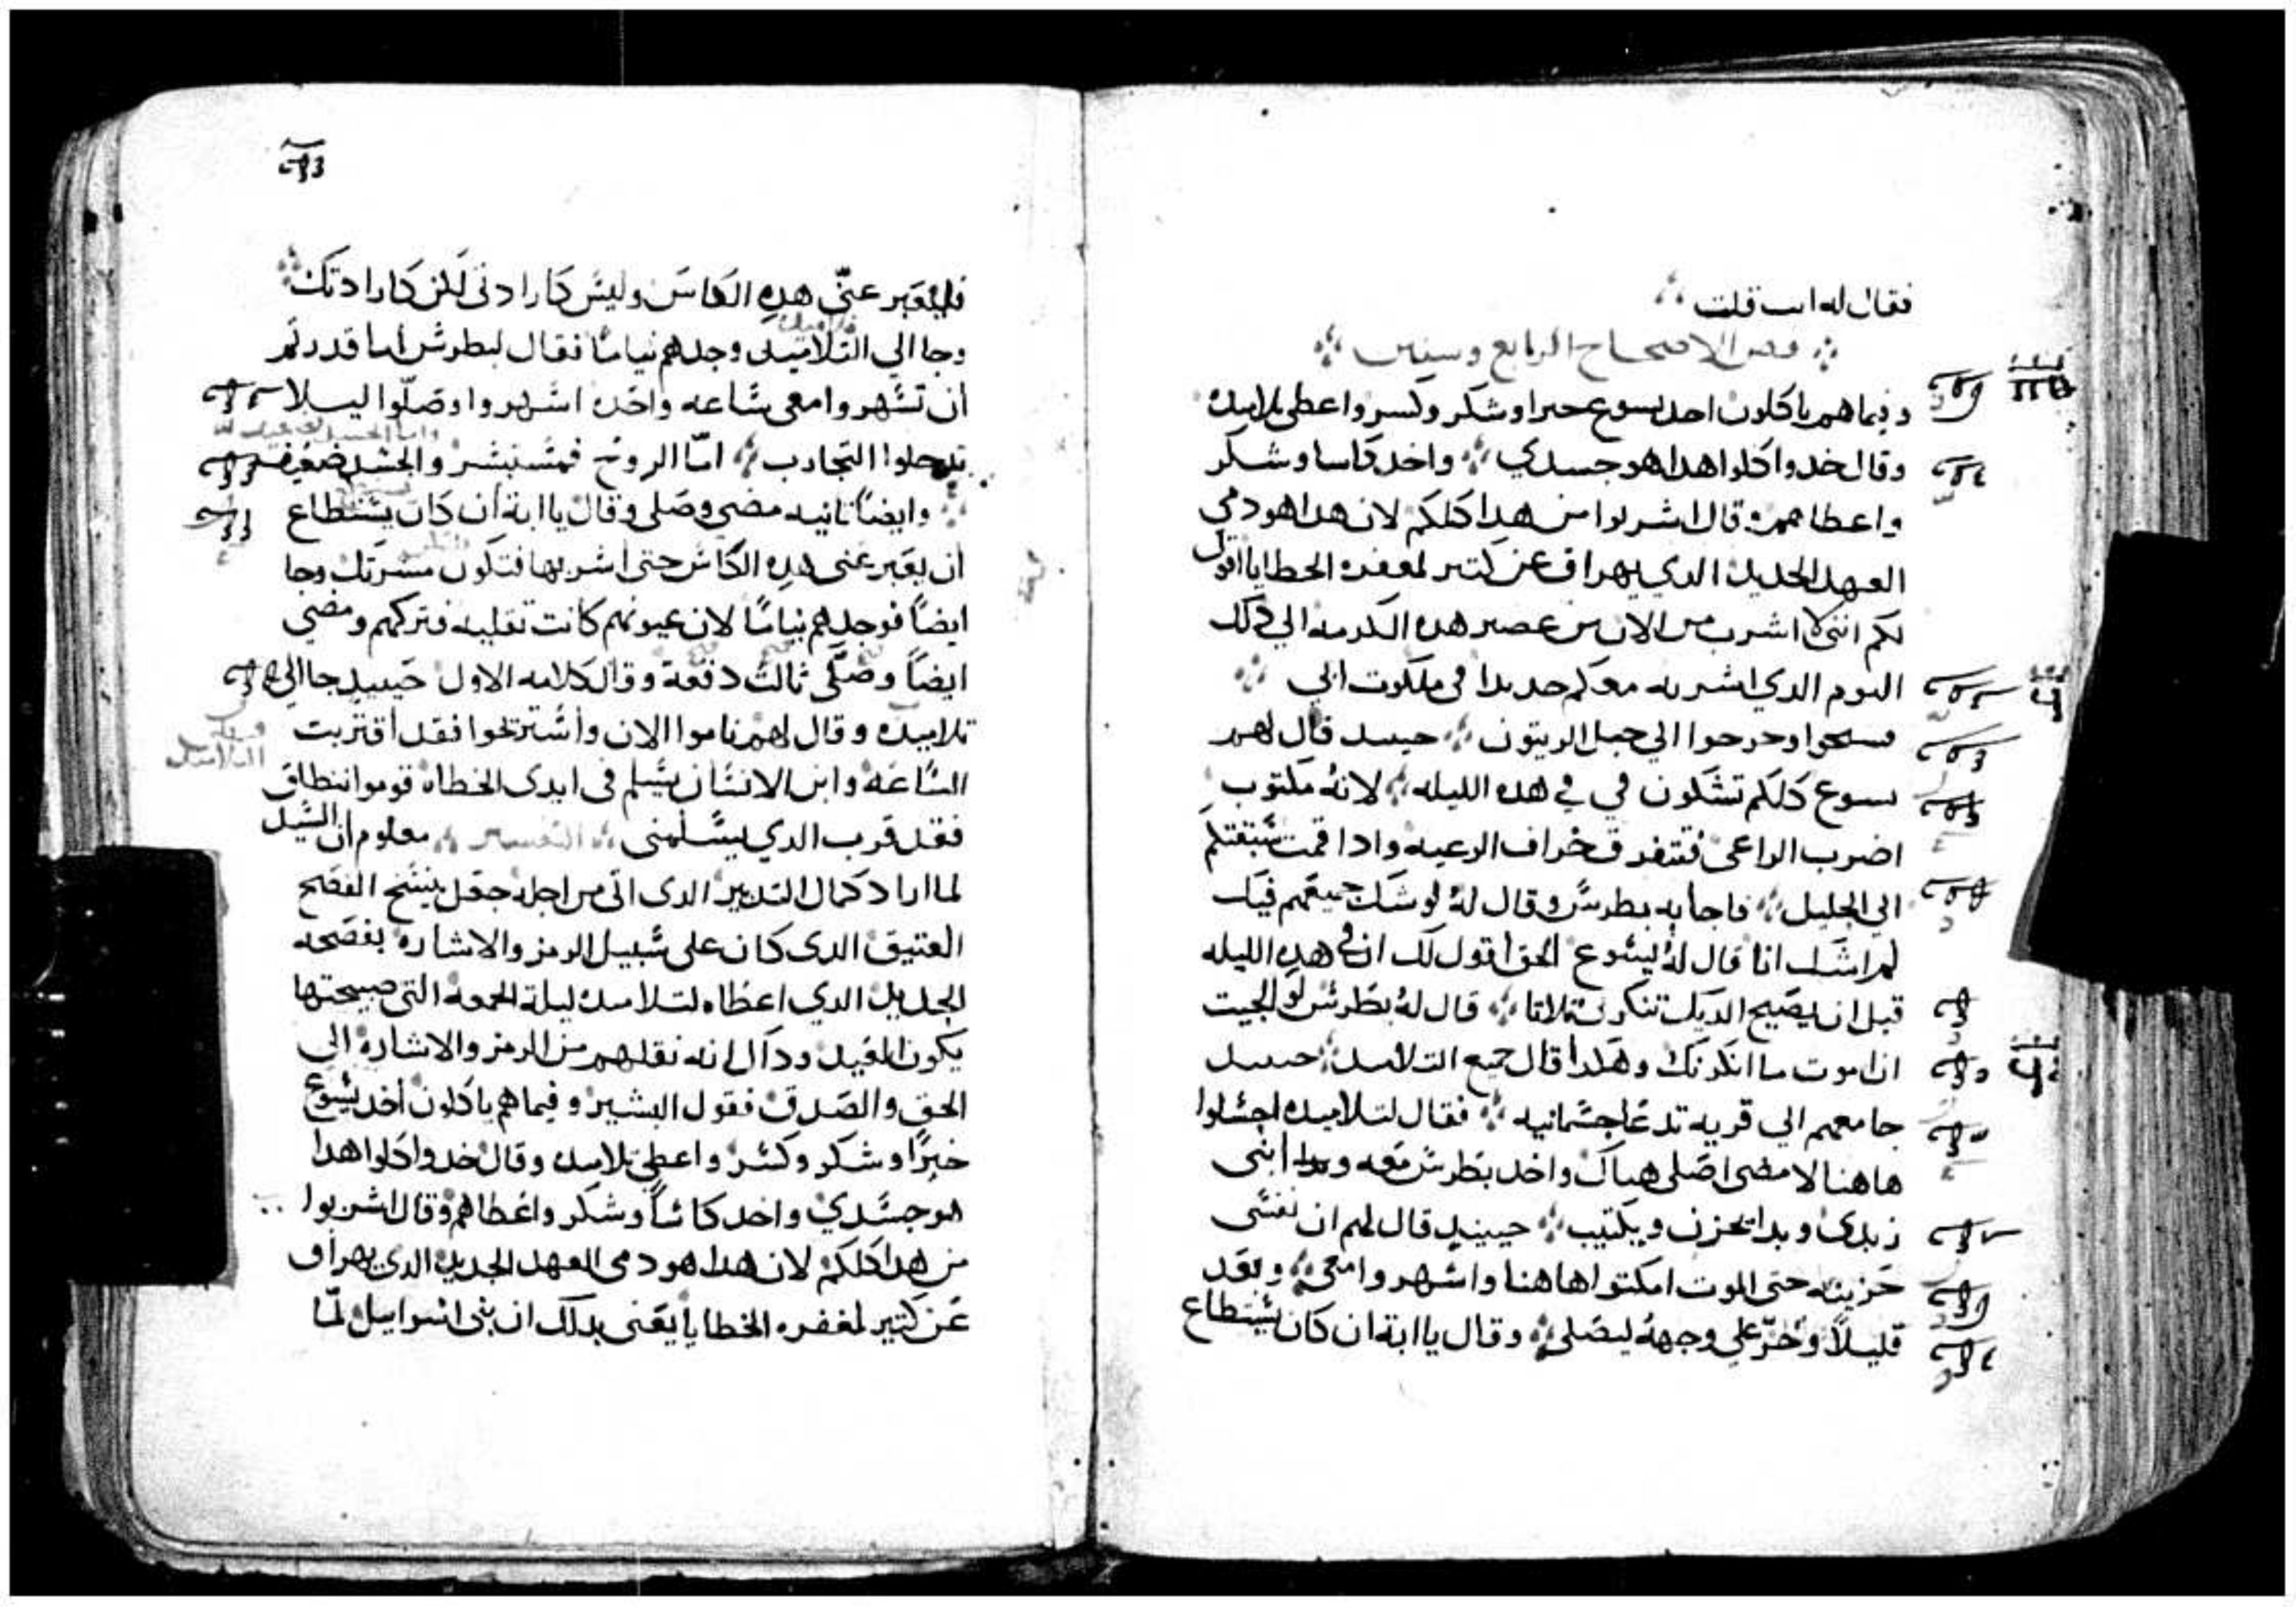 فقال له انت قلت
فص الاصحاح الرابع وستين
وفيما هم ياكلون اخد يسوع خبزا وشكر وكسر واعطى تلاميده
وقال خدوا كلوا هدا هو جسدي واخد كاسا وشكر
واعطاهم وقال اشربوا من هدا كلكم لان هدا هو دمي
العهد الجديد الدي يهراق عن كتير لمغفره الخطايا اقول
لكم انني لا اشرب من الان من عصير هده الكرمه الي دلك
اليوم الدي اشربه معكم جديدا في ملكوت ابي
فسبحوا وخرجوا الي جبل الزيتون حينيد قال لهم
يسوع كلكم تشكون في في هده الليله لانه مكتوب
اضرب الراعي فتتفرق خراف الرعيه وادا قمت سبقتكم
الي الجليل فاجابه بطرس وقال له لو شك جميعهم فيك
لم اشك انا قال له يسوع الحق اقول لك ان في هده الليله
قبل ان يصيح الديك تنكرني تلاتا قال له بطرس لو الجيت
ان اموت ما انكرتك وهكدا قال جميع التلاميد حينيد
جا معهم الي قريه تدعا جسمانيه فقال لتلاميده اجلسوا
هاهنا لامضي اصلي هناك واخد بطرس معه وابني
زبدي وبدا يحزن ويكتيب حينيد قال لهم ان نفسي
حزينه حتى الموت امكتوا هاهنا واسهروا معي وبعد
قليلا وخر علي وجهه ليصلي وقال يا ابة ان كان يستطاع
فليعبر عني هده الكاس وليس كارادتي لكن كارادتك
وجا الي التلاميد وجدهم نياما فقال لبطرس اما قدرتم
ان تسهروا معي ساعه واحده اسهروا وصلوا ليلا
تدخلوا التجارب اما الروح فمستبشر والجسد ضعيف
وايضا تانيه مضي وصلى وقال يا ابة ان كان يستطاع
ان يعبر عني هده الكاس حتى اشربها فتكون مسرتك وجا
ايضا فوجدهم نياما لان عيونهم كانت تقليه فتركهم ومضي
ايضا وصلى ثالث دفعة وقال كلامه الاول حينيد جا الي
تلاميده وقال لهم ناموا الان واستريحوا فقد اقتربت
الساعه وابن الانسان يسلم في ايدي الخطاه قوموا ننطلق
فقد قرب الدي يسلمني التفسير معلوم ان السيد
لما اراد كمال التدبير الدي اتى من اجله جعل ينسخ الفصح
العتيق الدي كان على سبيل الرمز والاشارة بفصحه
الجديد الدي اعطاه لتلاميده ليلة الجمعه التي صبيحتها
يكون الفيد وداك انه نقلهم من الرمز والاشاره الي
الحق والصدق فقول البشير وفيما هم ياكلون اخد يسوع
خبزا وشكر وكسر واعطى تلاميده وقال خدوا كلوا هدا
هو جسدي واخد كاسا وشكر واعطاهم وقال اشربوا
من هدا كلكم لان هدا هو دمي العهد الجديد الدي يهراق
عن كتير لمغفره الخطايا يعني بدلك ان بني اسراييل لما